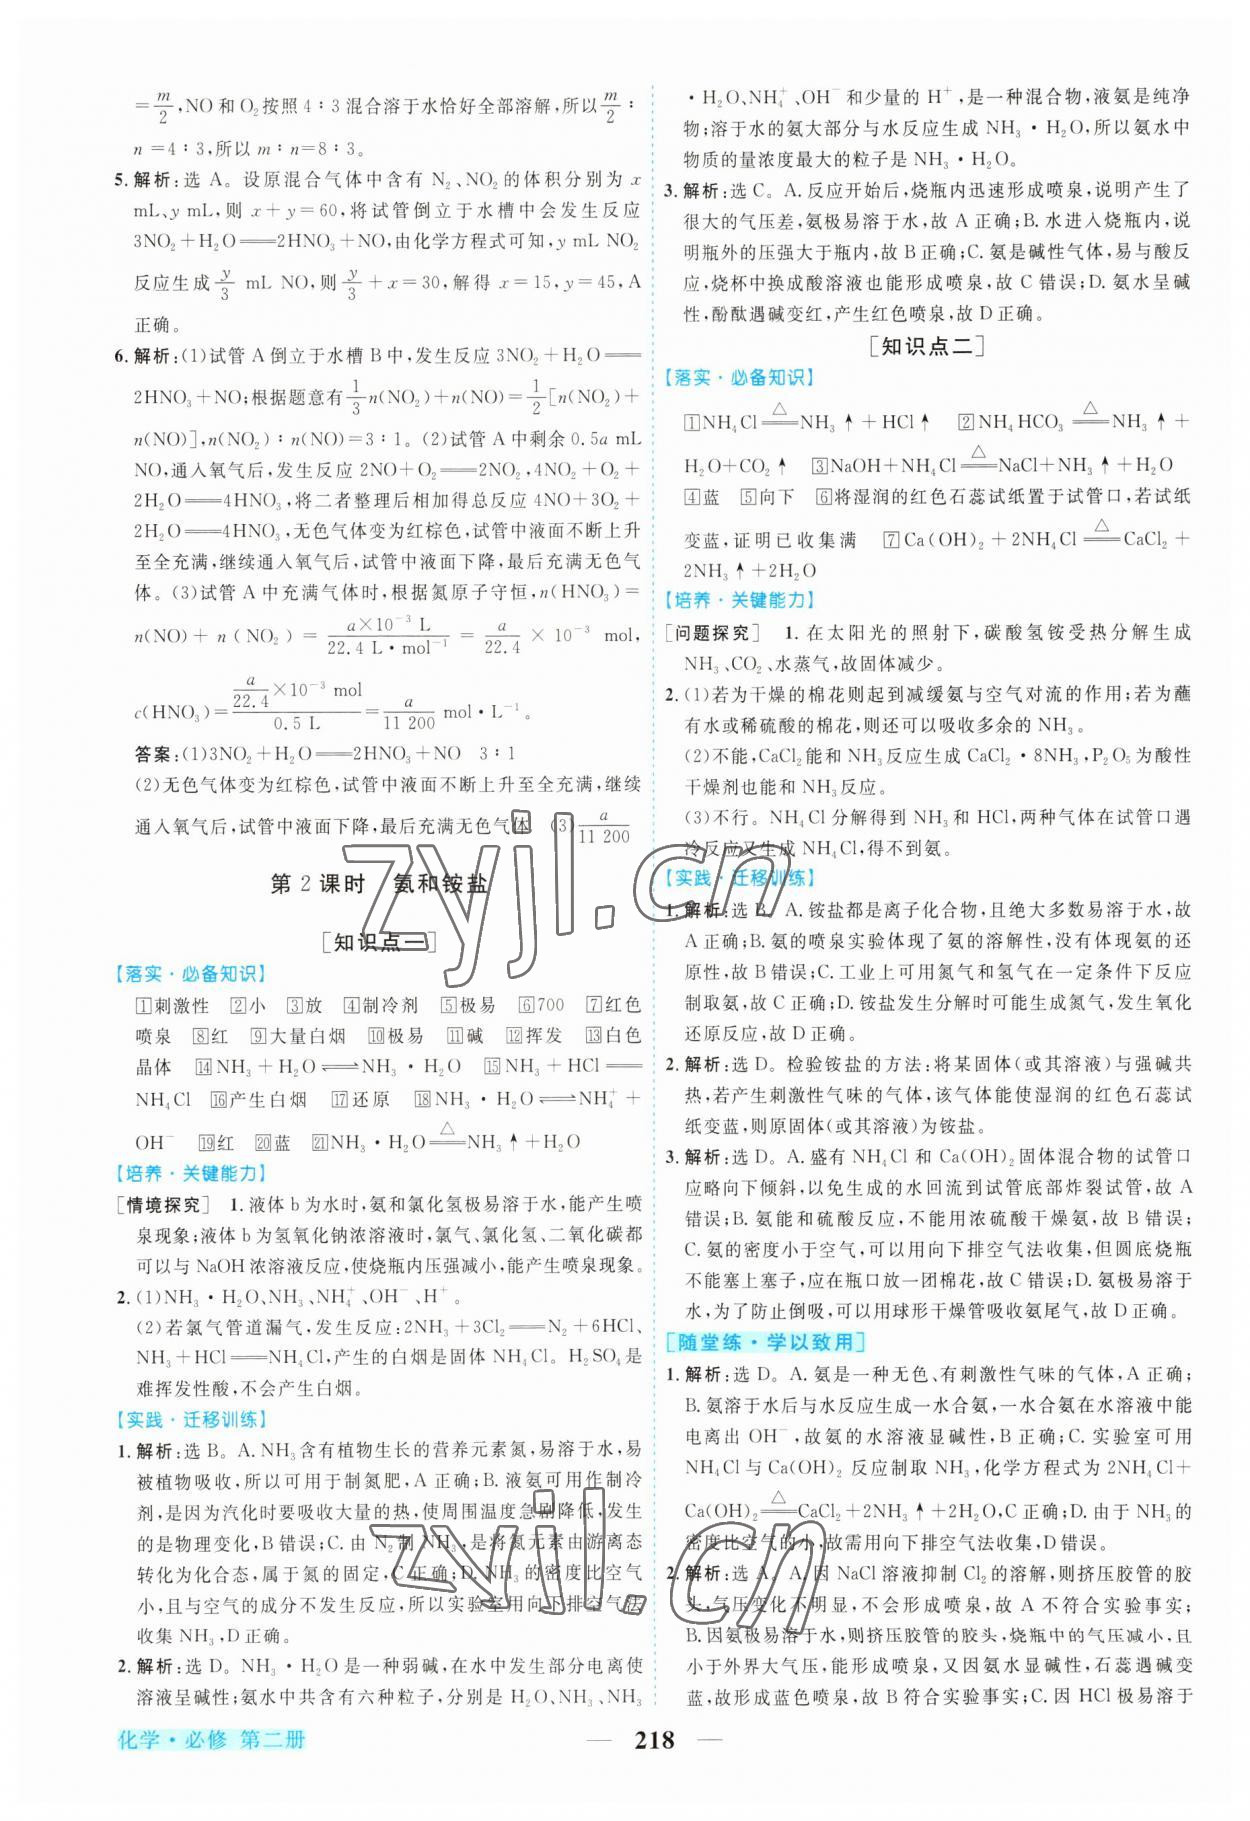 =m/2,NO和O₂按照4∶3混合溶于水恰好全部溶解,所以m/2∶
n=4∶3,所以m∶n=8∶3。
5.解析:选A。设原混合气体中含有N₂、NO₂的体积分别为x
mL、y mL,则x+y=60,将试管倒立于水槽中会发生反应
3NO₂+H₂O══2HNO₃+NO,由化学方程式可知,y mL NO₂
反应生成y/3 mL NO,则y/3+x=30,解得x=15,y=45,A
正确。
6.解析:(1)试管A倒立于水槽B中,发生反应3NO₂+H₂O══
2HNO₃+NO;根据题意有1/3n(NO₂)+n(NO)=1/2[n(NO₂)+
n(NO)],n(NO₂)∶n(NO)=3∶1。(2)试管A中剩余0.5a mL
NO,通入氧气后,发生反应2NO+O₂══2NO₂,4NO₂+O₂+
2H₂O══4HNO₃,将二者整理后相加得总反应4NO+3O₂+
2H₂O══4HNO₃,无色气体变为红棕色,试管中液面不断上升
至全充满,继续通入氧气后,试管中液面下降,最后充满无色气
体。(3)试管A中充满气体时,根据氮原子守恒,n(HNO₃)=
n(NO)+n(NO₂)=a×10⁻³ L/22.4 L·mol⁻¹=a/22.4×10⁻³ mol,
c(HNO₃)=(a/22.4×10⁻³ mol)/0.5 L=a/11 200 mol·L⁻¹。
答案:(1)3NO₂+H₂O══2HNO₃+NO 3∶1
(2)无色气体变为红棕色,试管中液面不断上升至全充满,继续
通入氧气后,试管中液面下降,最后充满无色气体 (3)a/11 200
第2课时 氨和铵盐
[知识点一]
【落实·必备知识】
①刺激性 ②小 ③放 ④制冷剂 ⑤极易 ⑥700 ⑦红色
喷泉 ⑧红 ⑨大量白烟 ⑩极易 ⑪碱 ⑫挥发 ⑬白色
晶体 ⑭NH₃+H₂O⇌NH₃·H₂O ⑮NH₃+HCl══
NH₄Cl ⑯产生白烟 ⑰还原 ⑱NH₃·H₂O⇌NH₄⁺+
OH⁻ ⑲红 ⑳蓝 ㉑NH₃·H₂O══(△)NH₃↑+H₂O
【培养·关键能力】
[情境探究] 1.液体b为水时,氨和氯化氢极易溶于水,能产生喷
泉现象;液体b为氢氧化钠浓溶液时,氯气、氯化氢、二氧化碳都
可以与NaOH浓溶液反应,使烧瓶内压强减小,能产生喷泉现象。
2.(1)NH₃·H₂O、NH₃、NH₄⁺、OH⁻、H⁺。
(2)若氯气管道漏气,发生反应:2NH₃+3Cl₂══N₂+6HCl、
NH₃+HCl══NH₄Cl,产生的白烟是固体NH₄Cl。H₂SO₄是
难挥发性酸,不会产生白烟。
【实践·迁移训练】
1.解析:选B。A.NH₃含有植物生长的营养元素氮,易溶于水,易
被植物吸收,所以可用于制氮肥,A正确;B.液氨可用作制冷
剂,是因为汽化时要吸收大量的热,使周围温度急剧降低,发生
的是物理变化,B错误;C.由N₂制NH₃,是将氮元素由游离态
转化为化合态,属于氮的固定,C正确;D.NH₃的密度比空气
小,且与空气的成分不发生反应,所以实验室用向下排空气法
收集NH₃,D正确。
2.解析:选D。NH₃·H₂O是一种弱碱,在水中发生部分电离使
溶液呈碱性;氨水中共含有六种粒子,分别是H₂O、NH₃、NH₃
·H₂O、NH₄⁺、OH⁻和少量的H⁺,是一种混合物,液氨是纯净
物;溶于水的氨大部分与水反应生成NH₃·H₂O,所以氨水中
物质的量浓度最大的粒子是NH₃·H₂O。
3.解析:选C。A.反应开始后,烧瓶内迅速形成喷泉,说明产生了
很大的气压差,氨极易溶于水,故A正确;B.水进入烧瓶内,说
明瓶外的压强大于瓶内,故B正确;C.氨是碱性气体,易与酸反
应,烧杯中换成酸溶液也能形成喷泉,故C错误;D.氨水呈碱
性,酚酞遇碱变红,产生红色喷泉,故D正确。
[知识点二]
【落实·必备知识】
①NH₄Cl══(△)NH₃↑+HCl↑ ②NH₄HCO₃══(△)NH₃↑+
H₂O+CO₂↑ ③NaOH+NH₄Cl══(△)NaCl+NH₃↑+H₂O
④蓝 ⑤向下 ⑥将湿润的红色石蕊试纸置于试管口,若试纸
变蓝,证明已收集满 ⑦Ca(OH)₂+2NH₄Cl══(△)CaCl₂+
2NH₃↑+2H₂O
【培养·关键能力】
[问题探究] 1.在太阳光的照射下,碳酸氢铵受热分解生成
NH₃、CO₂、水蒸气,故固体减少。
2.(1)若为干燥的棉花则起到减缓氨与空气对流的作用;若为蘸
有水或稀硫酸的棉花,则还可以吸收多余的NH₃。
(2)不能,CaCl₂能和NH₃反应生成CaCl₂·8NH₃,P₂O₅为酸性
干燥剂也能和NH₃反应。
(3)不行。NH₄Cl分解得到NH₃和HCl,两种气体在试管口遇
冷反应又生成NH₄Cl,得不到氨。
【实践·迁移训练】
1.解析:选B。A.铵盐都是离子化合物,且绝大多数易溶于水,故
A正确;B.氨的喷泉实验体现了氨的溶解性,没有体现氨的还
原性,故B错误;C.工业上可用氮气和氢气在一定条件下反应
制取氨,故C正确;D.铵盐发生分解时可能生成氮气,发生氧化
还原反应,故D正确。
2.解析:选D。检验铵盐的方法:将某固体(或其溶液)与强碱共
热,若产生刺激性气味的气体,该气体能使湿润的红色石蕊试
纸变蓝,则原固体(或其溶液)为铵盐。
3.解析:选D。A.盛有NH₄Cl和Ca(OH)₂固体混合物的试管口
应略向下倾斜,以免生成的水回流到试管底部炸裂试管,故A
错误;B.氨能和硫酸反应,不能用浓硫酸干燥氨,故B错误;
C.氨的密度小于空气,可以用向下排空气法收集,但圆底烧瓶
不能塞上塞子,应在瓶口放一团棉花,故C错误;D.氨极易溶于
水,为了防止倒吸,可以用球形干燥管吸收氨尾气,故D正确。
[随堂练·学以致用]
1.解析:选D。A.氨是一种无色、有刺激性气味的气体,A正确;
B.氨溶于水后与水反应生成一水合氨,一水合氨在水溶液中能
电离出OH⁻,故氨的水溶液显碱性,B正确;C.实验室可用
NH₄Cl与Ca(OH)₂反应制取NH₃,化学方程式为2NH₄Cl+
Ca(OH)₂══(△)CaCl₂+2NH₃↑+2H₂O,C正确;D.由于NH₃的
密度比空气的小,故需用向下排空气法收集,D错误。
2.解析:选A。A.因NaCl溶液抑制Cl₂的溶解,则挤压胶管的胶
头,气压变化不明显,不会形成喷泉,故A不符合实验事实;
B.因氨极易溶于水,则挤压胶管的胶头,烧瓶中的气压减小,且
小于外界大气压,能形成喷泉,又因氨水显碱性,石蕊遇碱变
蓝,故形成蓝色喷泉,故B符合实验事实;C.因HCl极易溶于
化学·必修 第二册
218
zyjl.cn
zyjl.cn